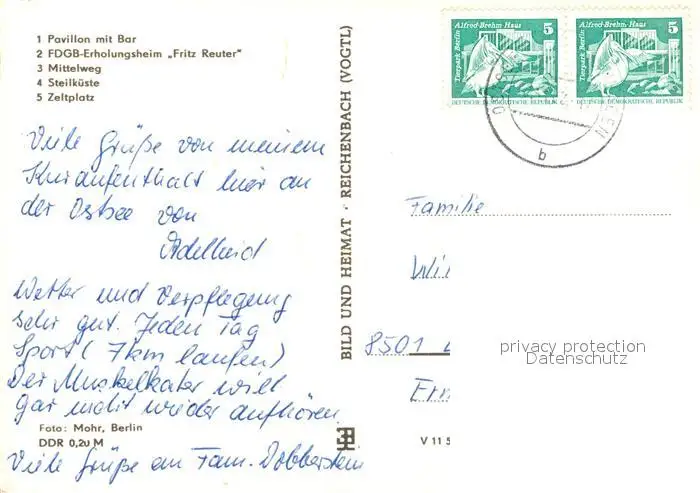 1 Pavillon mit Bar
2 FDGB-Erholungsheim „Fritz Reuter"
3 Mittelweg
4 Steilküste
5 Zeltplatz
Viele Grüße von meinem
Kuraufenthalt hier an
der Ostsee von
Adelheid
Wetter und Verpflegung
sehr gut. Jeden Tag
Sport (7km laufen)
Der Muskelkater will
gar nicht wieder aufhören.
Foto: Mohr, Berlin
DDR 0,20 M
Viele Grüße an Fam. Dobberstein
BILD UND HEIMAT · REICHENBACH (VOGTL)
Alfred-Brehm-Haus 5
Tierpark Berlin
DEUTSCHE DEMOKRATISCHE REPUBLIK
Alfred-Brehm-Haus 5
Tierpark Berlin
DEUTSCHE DEMOKRATISCHE REPUBLIK
b
Familie
8501
privacy protection
Datenschutz
V 11 5